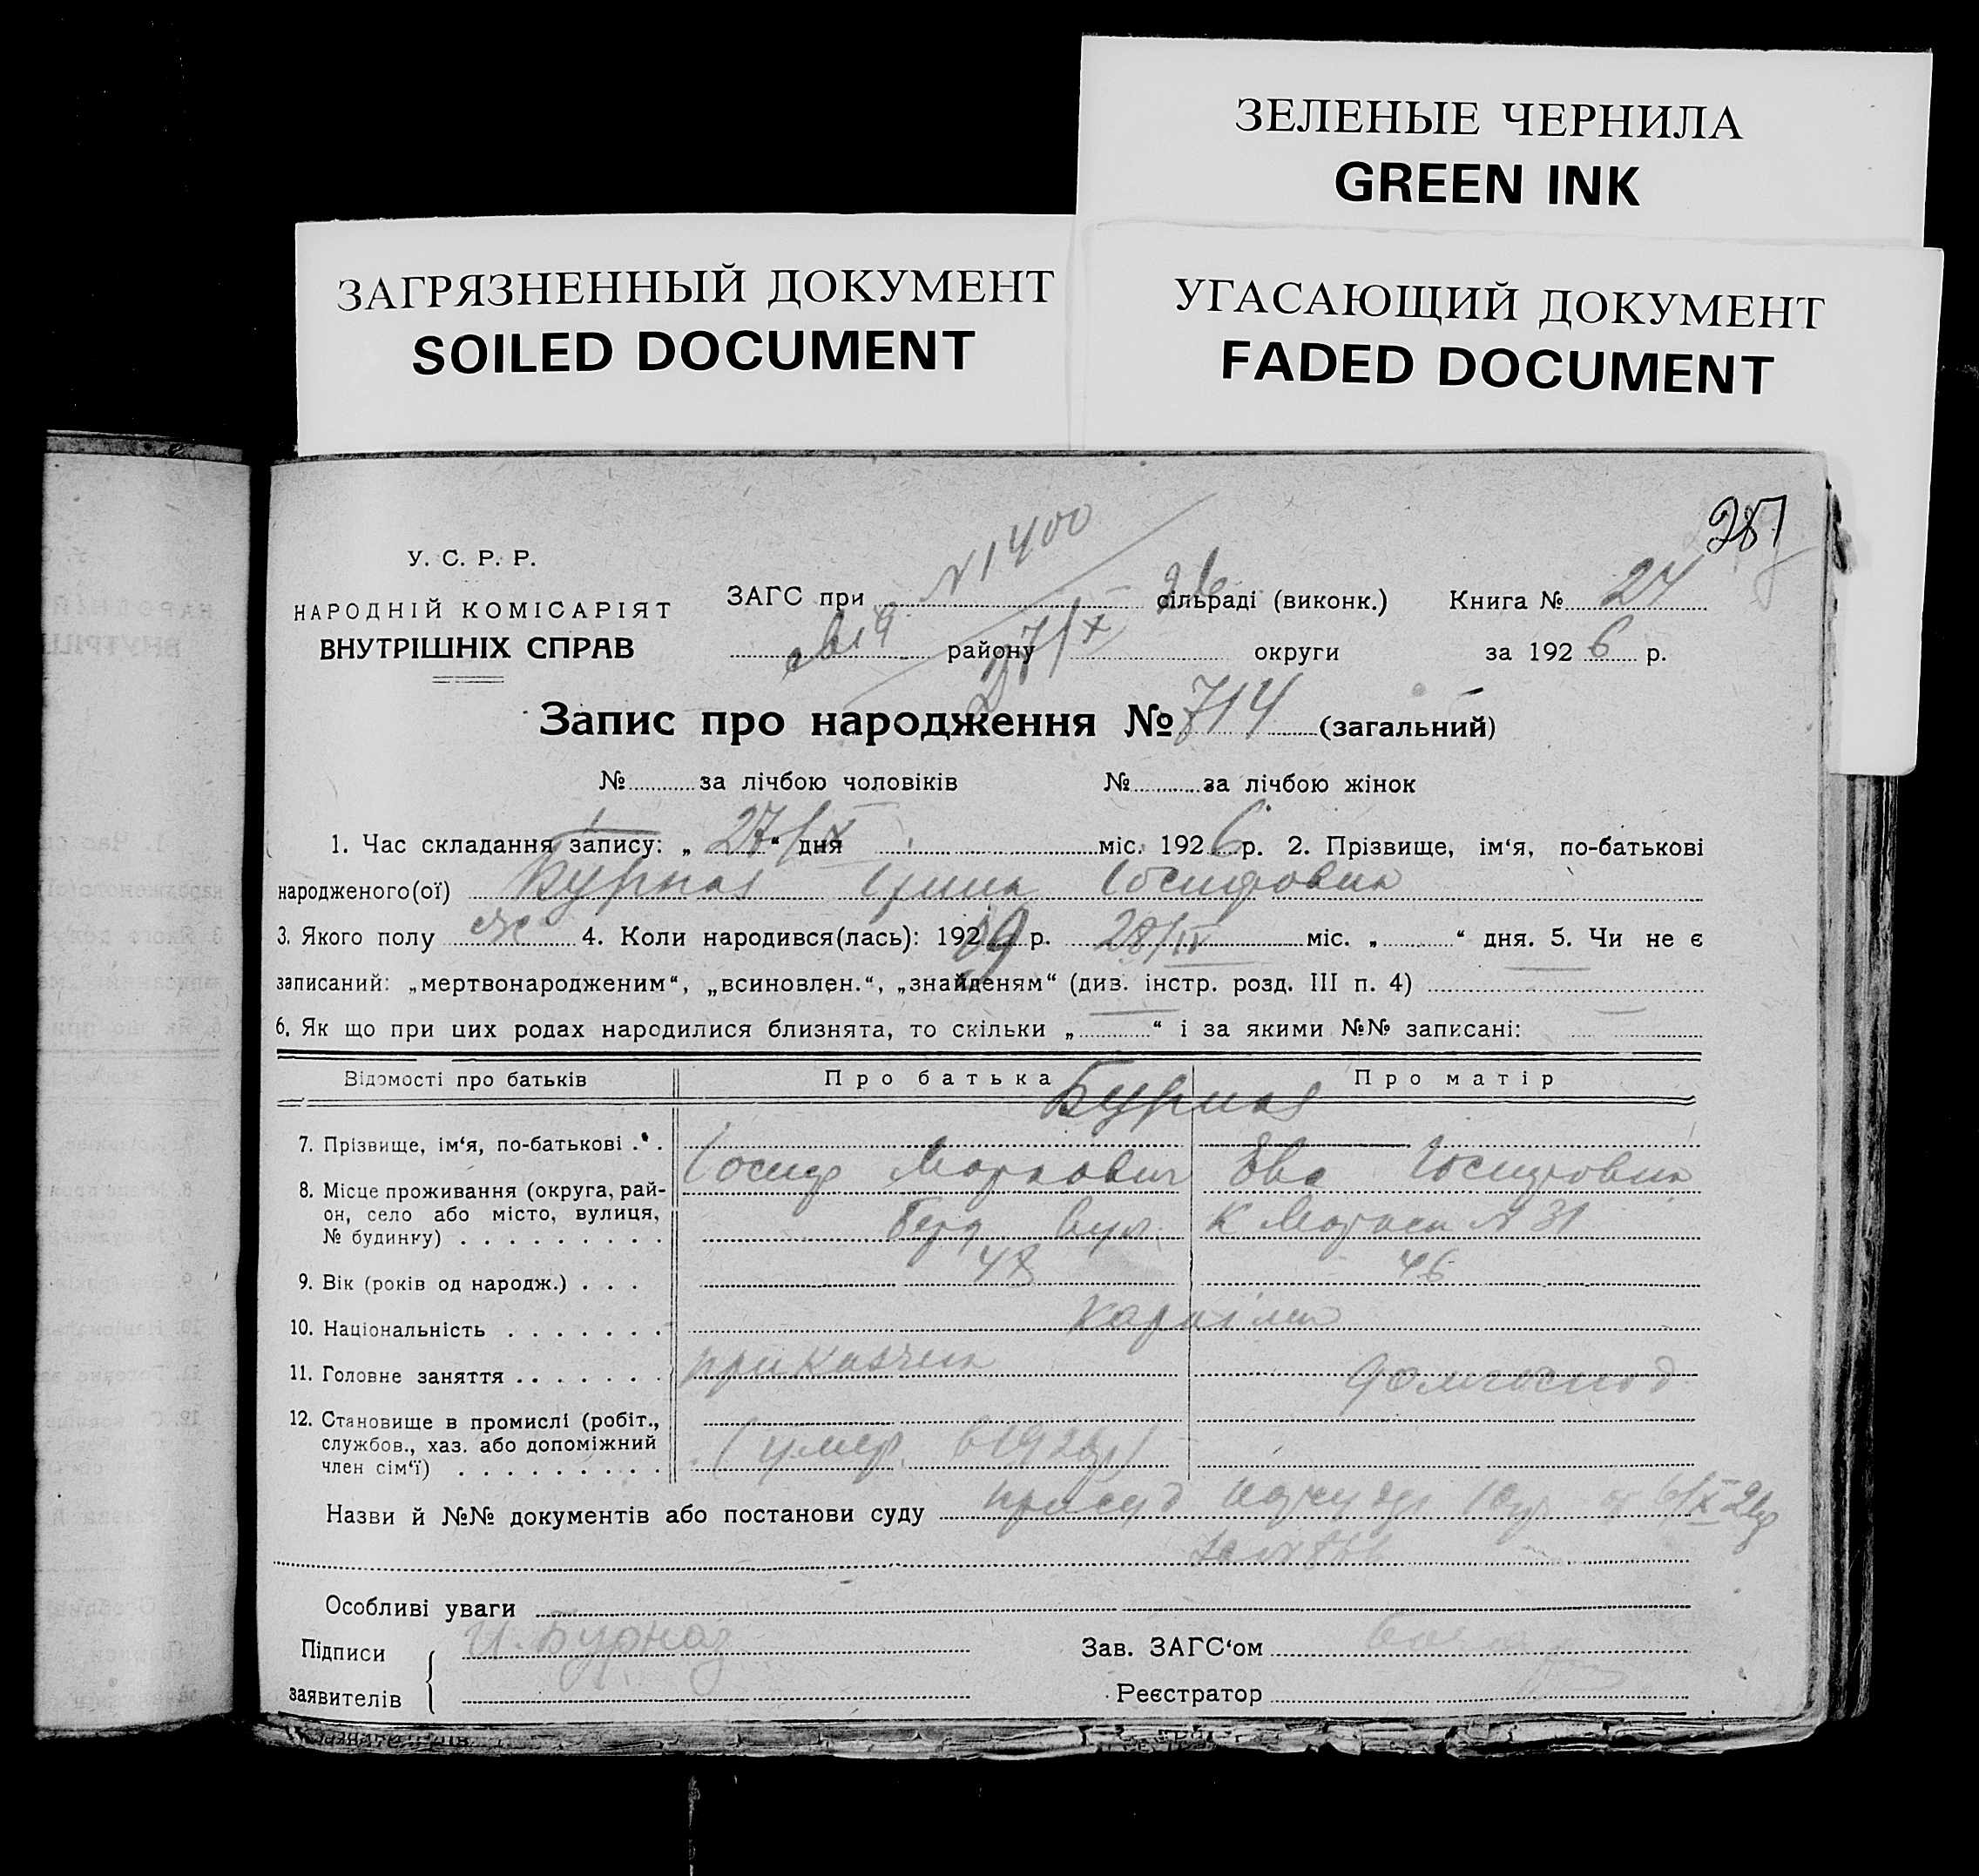 ЗЕЛЕНЫЕ ЧЕРНИЛА
GREEN INK
ЗАГРЯЗНЕННЫЙ ДОКУМЕНТ
SOILED DOCUMENT
УГАСАЮЩИЙ ДОКУМЕНТ
FADED DOCUMENT
У. С. Р. Р.
НАРОДНІЙ КОМІСАРІЯТ
ВНУТРІШНІХ СПРАВ
N 1400
ЗАГС при сільраді (виконк.) Книга № 27
району округи за 1926 р.
27/X
Запис про народження № 714 (загальний)
№ за лічбою чоловіків № за лічбою жінок
1. Час складання запису: „ 27/X “ дня міс. 1926 р. 2. Прізвище, ім‘я, по-батькові
народженого(ої) Бурназ Ірина Іосифовна
3. Якого полу 4. Коли народився(лась): 192 р. 28/IV міс. „ “ дня. 5. Чи не є
записаний: „мертвонародженим“, „всиновлен.“, „знайденям“ (див. інстр. розд. III п. 4)
6. Як що при цих родах народилися близнята, то скільки „ “ і за якими №№ записані:
Відомості про батьків Про батька Про матір
Бурназ
7. Прізвище, ім‘я, по-батькові
Іосиф Маркович Ева Іосифовна
8. Місце проживання (округа, район, село або місто, вулиця, № будинку) вул. К Маркса N 31
9. Вік (років од народж.) 48 46
10. Національність
11. Головне заняття
12. Становище в промислі (робіт., службов., хаз. або допоміжний член сім‘ї)
Назви й №№ документів або постанови суду
Особливі уваги
Підписи И. Бурназ Зав. ЗАГС‘ом
заявителів Реєстратор